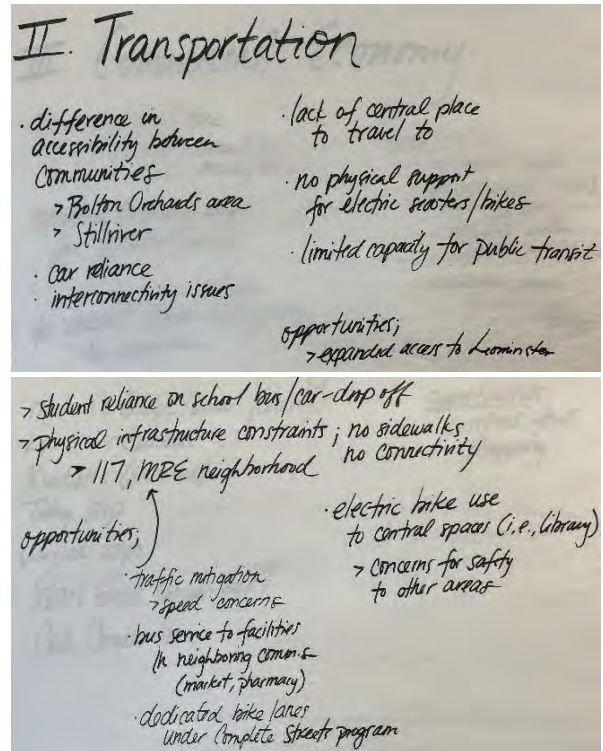 II. Transportation
· difference in
accessibility between
communities
> Bolton Orchards area
> Stillriver
· car reliance
· interconnectivity issues
· lack of central place
to travel to
· no physical support
for electric scooters/bikes
· limited capacity for public transit
opportunities;
> expanded access to Leominster
> student reliance on school bus/car-drop off
> physical infrastructure constraints; no sidewalks,
no connectivity
> 117, MRE neighborhood
opportunities;
· traffic mitigation
> speed concerns
· bus service to facilities
in neighboring comm.s
(market, pharmacy)
· dedicated bike lanes
under Complete Streets program
· electric bike use
to central spaces (i.e., Library)
> concerns for safety
to other areas